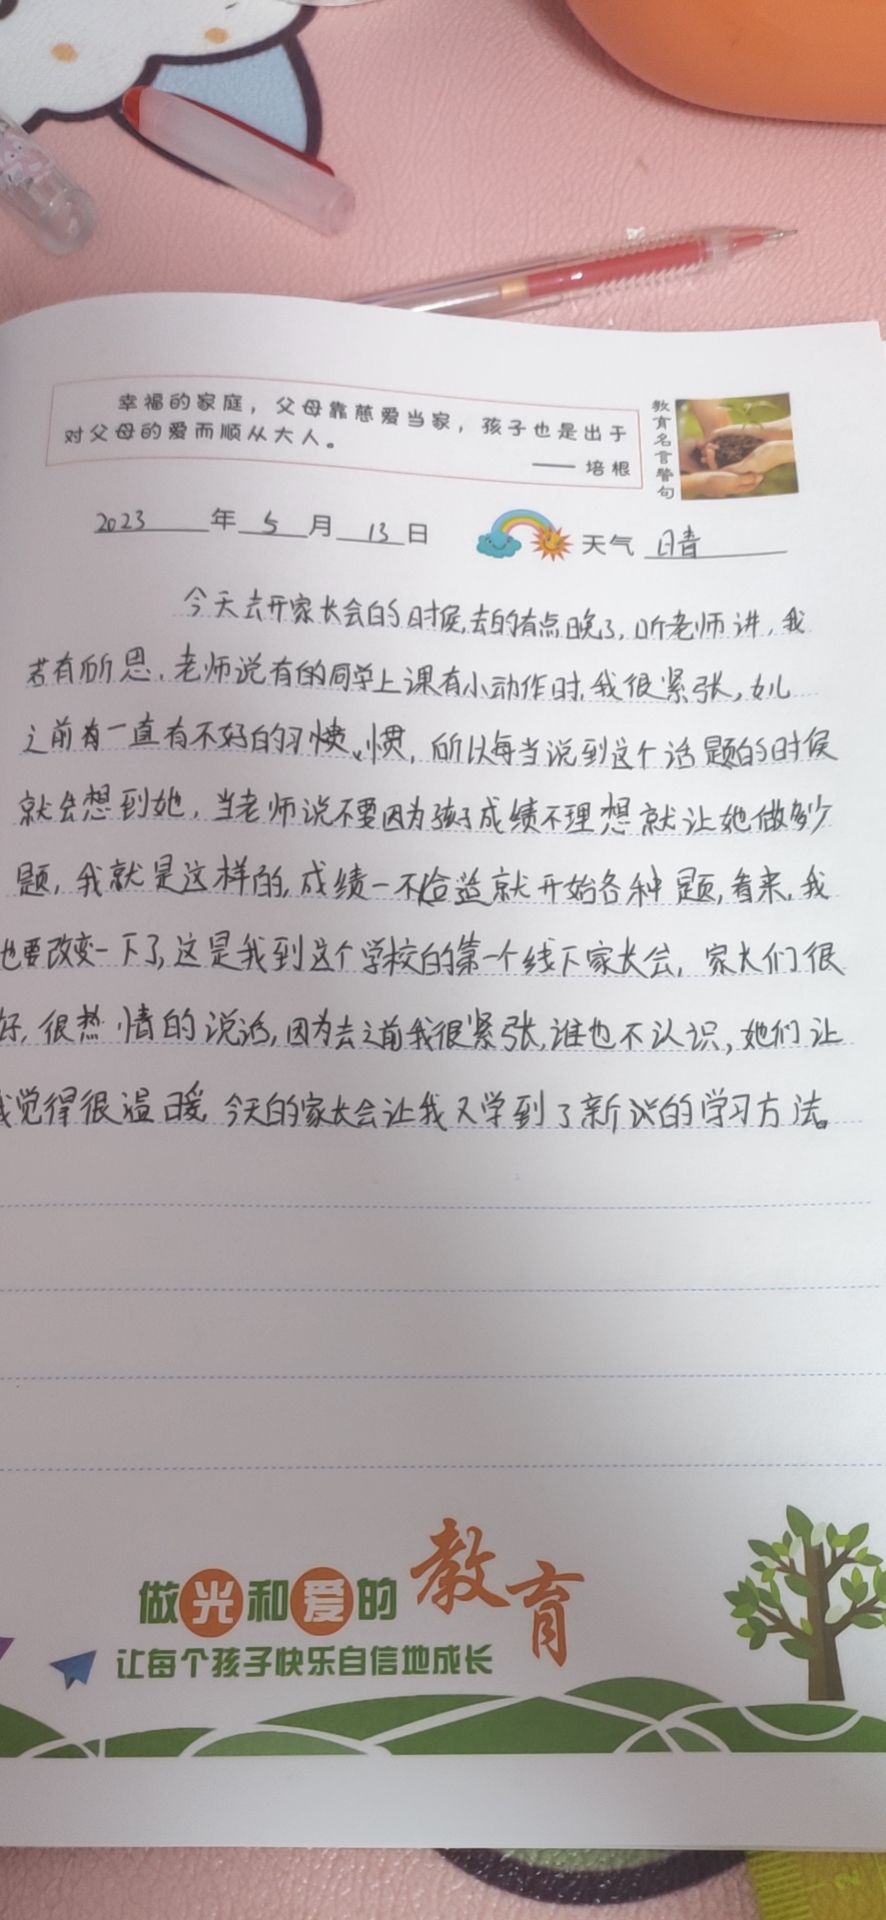 幸福的家庭，父母靠慈爱当家，孩子也是出于
对父母的爱而顺从大人。
—— 培根
教育名言警句
2023年5月13日 天气 晴
今天去开家长会的时候,去的有点晚了,听老师讲,我
若有所思,老师说有的同学上课有小动作时,我很紧张,女儿
之前有一直有不好的习惯,所以每当说到这个话题的时候
就会想到她,当老师说不要因为孩子成绩不理想就让她做多少
题,我就是这样的,成绩一不合适就开始各种题,看来,我
也要改变一下了,这是我到这个学校的第一个线下家长会,家长们很
好,很热情的说话,因为去之前我很紧张,谁也不认识,她们让
我觉得很温暖 今天的家长会让我又学到了新的学习方法。
做光和爱的教育
让每个孩子快乐自信地成长
2